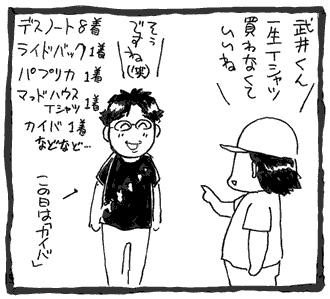 武井くん
一生Tシャツ
買わなくて
いいね
そう
ですね(笑)
デスノート8着
ライドバック1着
パプリカ 1着
マッドハウス
Tシャツ1着
カイバ 1着
などなど…
この日は「カイバ」